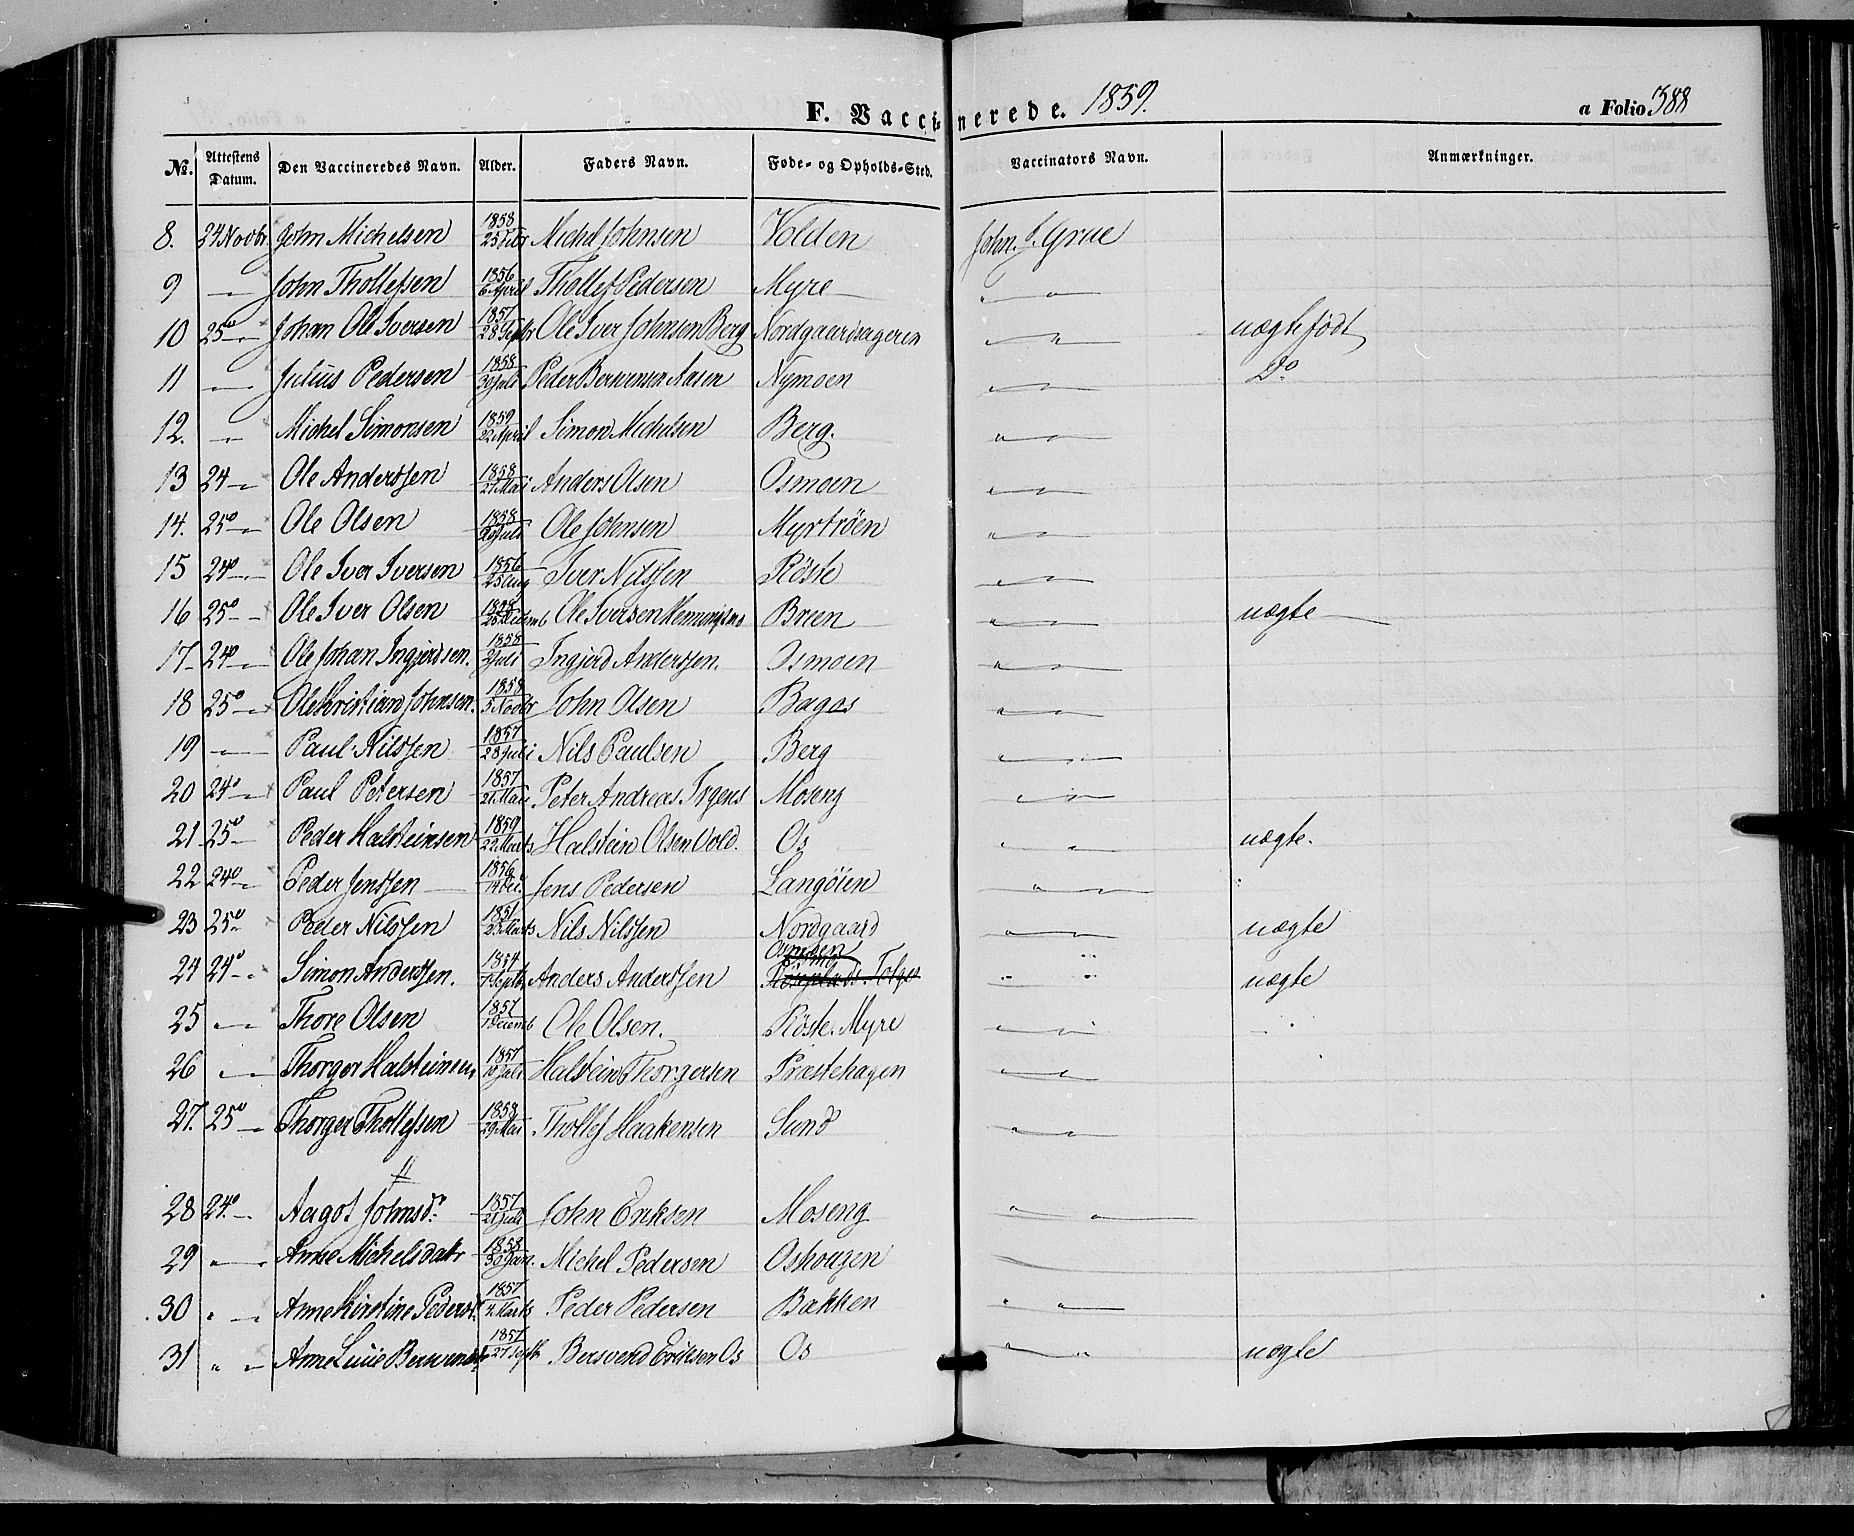 F. Vaccinerede. 1859. a Folio 388
No. Attestens Datum. Den Vaccineredes Navn. Alder. Faders Navn. Føde- og Opholds-Sted. Vaccinators Navn. Anmærkninger.
8. 24 Novbr. John Michelsen 1858 Michel Johnsen Volden John Grue
9 — John Tholefsen 1856 6 April Tholef Pedersen Myre — " "
10 25de — Johan Ole Iversen 1857 28 Septbr Ole Iver Johnsen Berg Nordgaardsageren " " uægte født
11 — Julius Pedersen 1858 30 Juli Peder Bersvensen Aasen Nymoen " " Do
12. — Michel Simonsen 1859 22 April Simon Michelsen Berg. " "
13 24 — Ole Anderssen 1858 21 Mai Anders Olsen Osmoen " "
14. 25de — Ole Olsen 1858 Juli Ole Johnsen Myrtrøen " "
15 24de — Ole Iver Iversen 1856 25 Aug Iver Nilssen Røste " "
16 25de — Ole Iver Olsen 1858 Decemb Ole Iversen Henningsmo Breen " " uægte —
17 24de — Ole Johan Ingjerdsen. 1858 2 Juli Ingjerd Anderssen. Osmoen " "
18 25de — Ole Kristian Johnsen. 1858 5 Novbr John Olsen Bagos " "
19 — Paul Nilssen 1857 28 Juli Nils Paulsen Berg " "
20 24de — Paul Petersen 1857 21 Mai Peter Andreas Trygens Moseng " "
21 25de Peder Halsteinsen 1859 22 Marts Halstein Olsen Vold. Os " " uægte.
22 24de — Peder Jenssen — 1856 14 Dec. Jens Pedersen Langøien " "
23 25de Peder Nilssen 1851 25 Marts Nils Nilssen Nordgaard " " uægte
24 24de — Simon Anderssen. 1854 7 Septbr Anders Anderssen " " uægte
25 " — Thore Olsen 1857 1 Decemb Ole Olsen. Røste. Myre " "
26 — Thorger Halsteinsen 1857 10 Juli Halstein Thorgersen Præstehagen " "
27. 25de — Thorger Tholefsen 1858 29 Mai Tholef Haakensen Sund " "
28 24de — Aagot Johnsd. 1857 21 Juli John Eriksen Moseng " "
29 " — Anne Michelsdatr 1858 30 Jan. Michel Pedersen Oshougen
30 " — Anne Kirstine Pedersd. 1857 4 Marts Peder Pedersen Bakken " "
31 " " Anne Lucie Bersvensd. 1857 27 Septb Bersvend Eriksen Os Os " " uægte